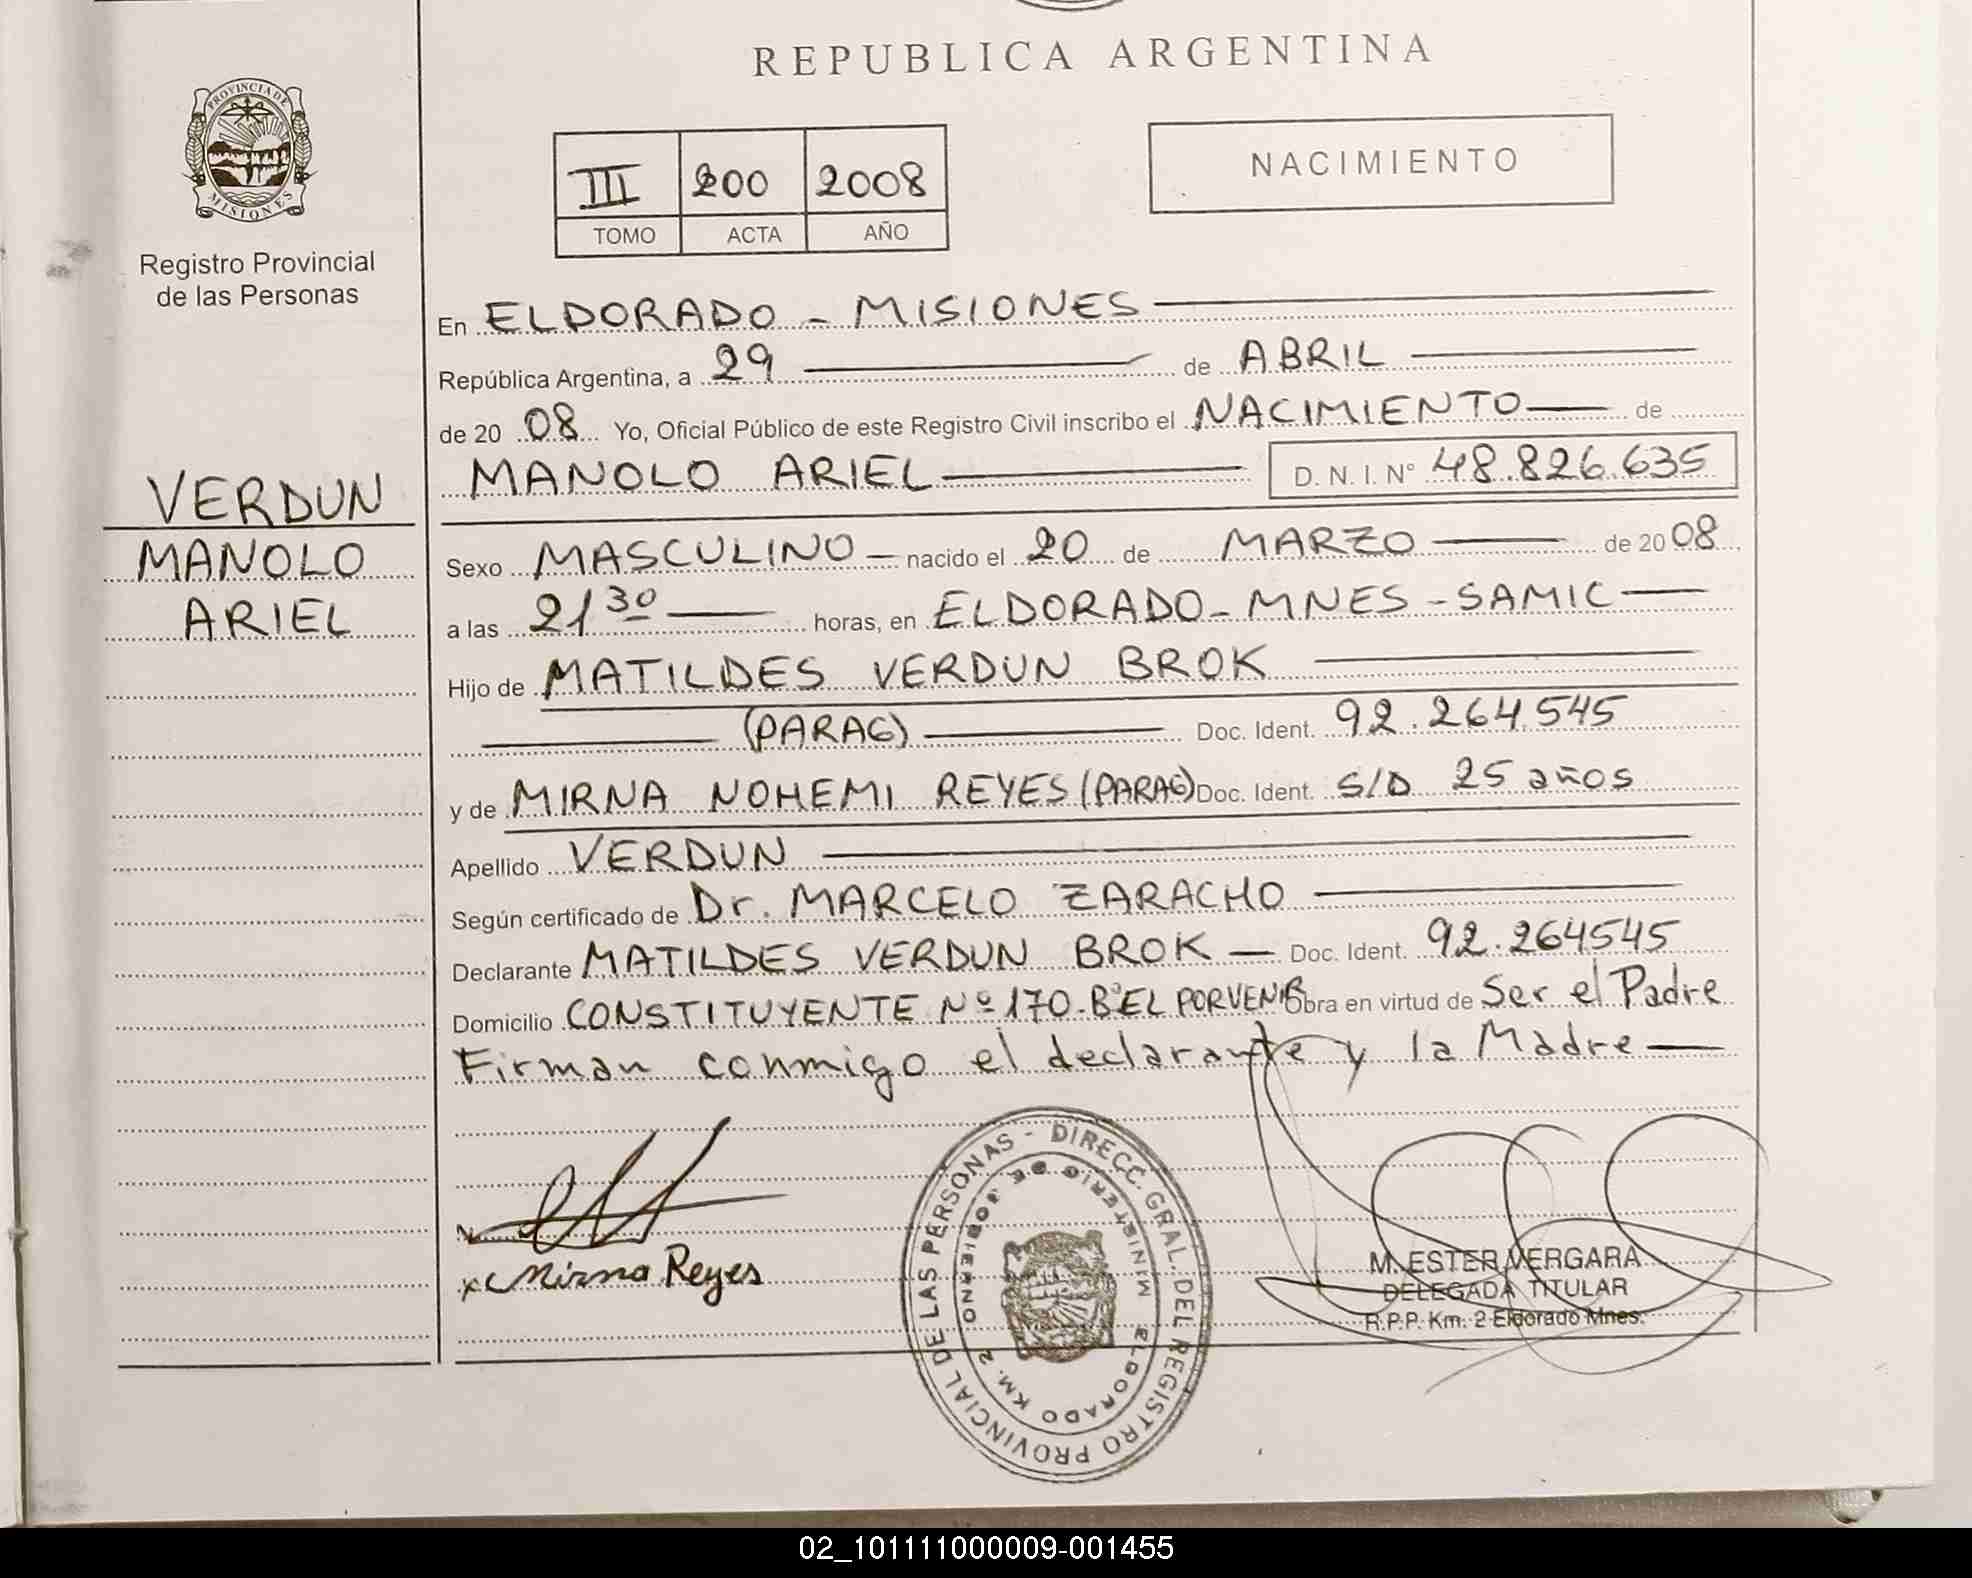 REPUBLICA ARGENTINA
PROVINCIA DE MISIONES
Registro Provincial
de las Personas
III 200 2008
TOMO ACTA AÑO
NACIMIENTO
En ELDORADO - MISIONES
República Argentina, a 29 de ABRIL
de 20 08 Yo, Oficial Público de este Registro Civil inscribo el NACIMIENTO de
MANOLO ARIEL D. N. I. N° 48.826.635
VERDUN
MANOLO
ARIEL
Sexo MASCULINO nacido el 20 de MARZO de 20 08
a las 21 30 horas, en ELDORADO - MNES - SAMIC
Hijo de MATILDES VERDUN BROK
(PARAG) Doc. Ident. 92.264.545
y de MIRNA NOHEMI REYES (PARAG) Doc. Ident. S/D 25 años
Apellido VERDUN
Según certificado de Dr. MARCELO ZARACHO
Declarante MATILDES VERDUN BROK Doc. Ident. 92.264545
Domicilio CONSTITUYENTE Nº 170-Bº EL PORVENIR Obra en virtud de Ser el Padre
Firman conmigo el declarante y la Madre
x Mirna Reyes
DIRECC. GRAL. DEL REGISTRO PROVINCIAL DE LAS PERSONAS -
MINISTERIO DE GOBIERNO
ELDORADO KM. 2
M. ESTER VERGARA
DELEGADA TITULAR
R.P.P. Km. 2 Eldorado Mnes.
02_101111000009-001455